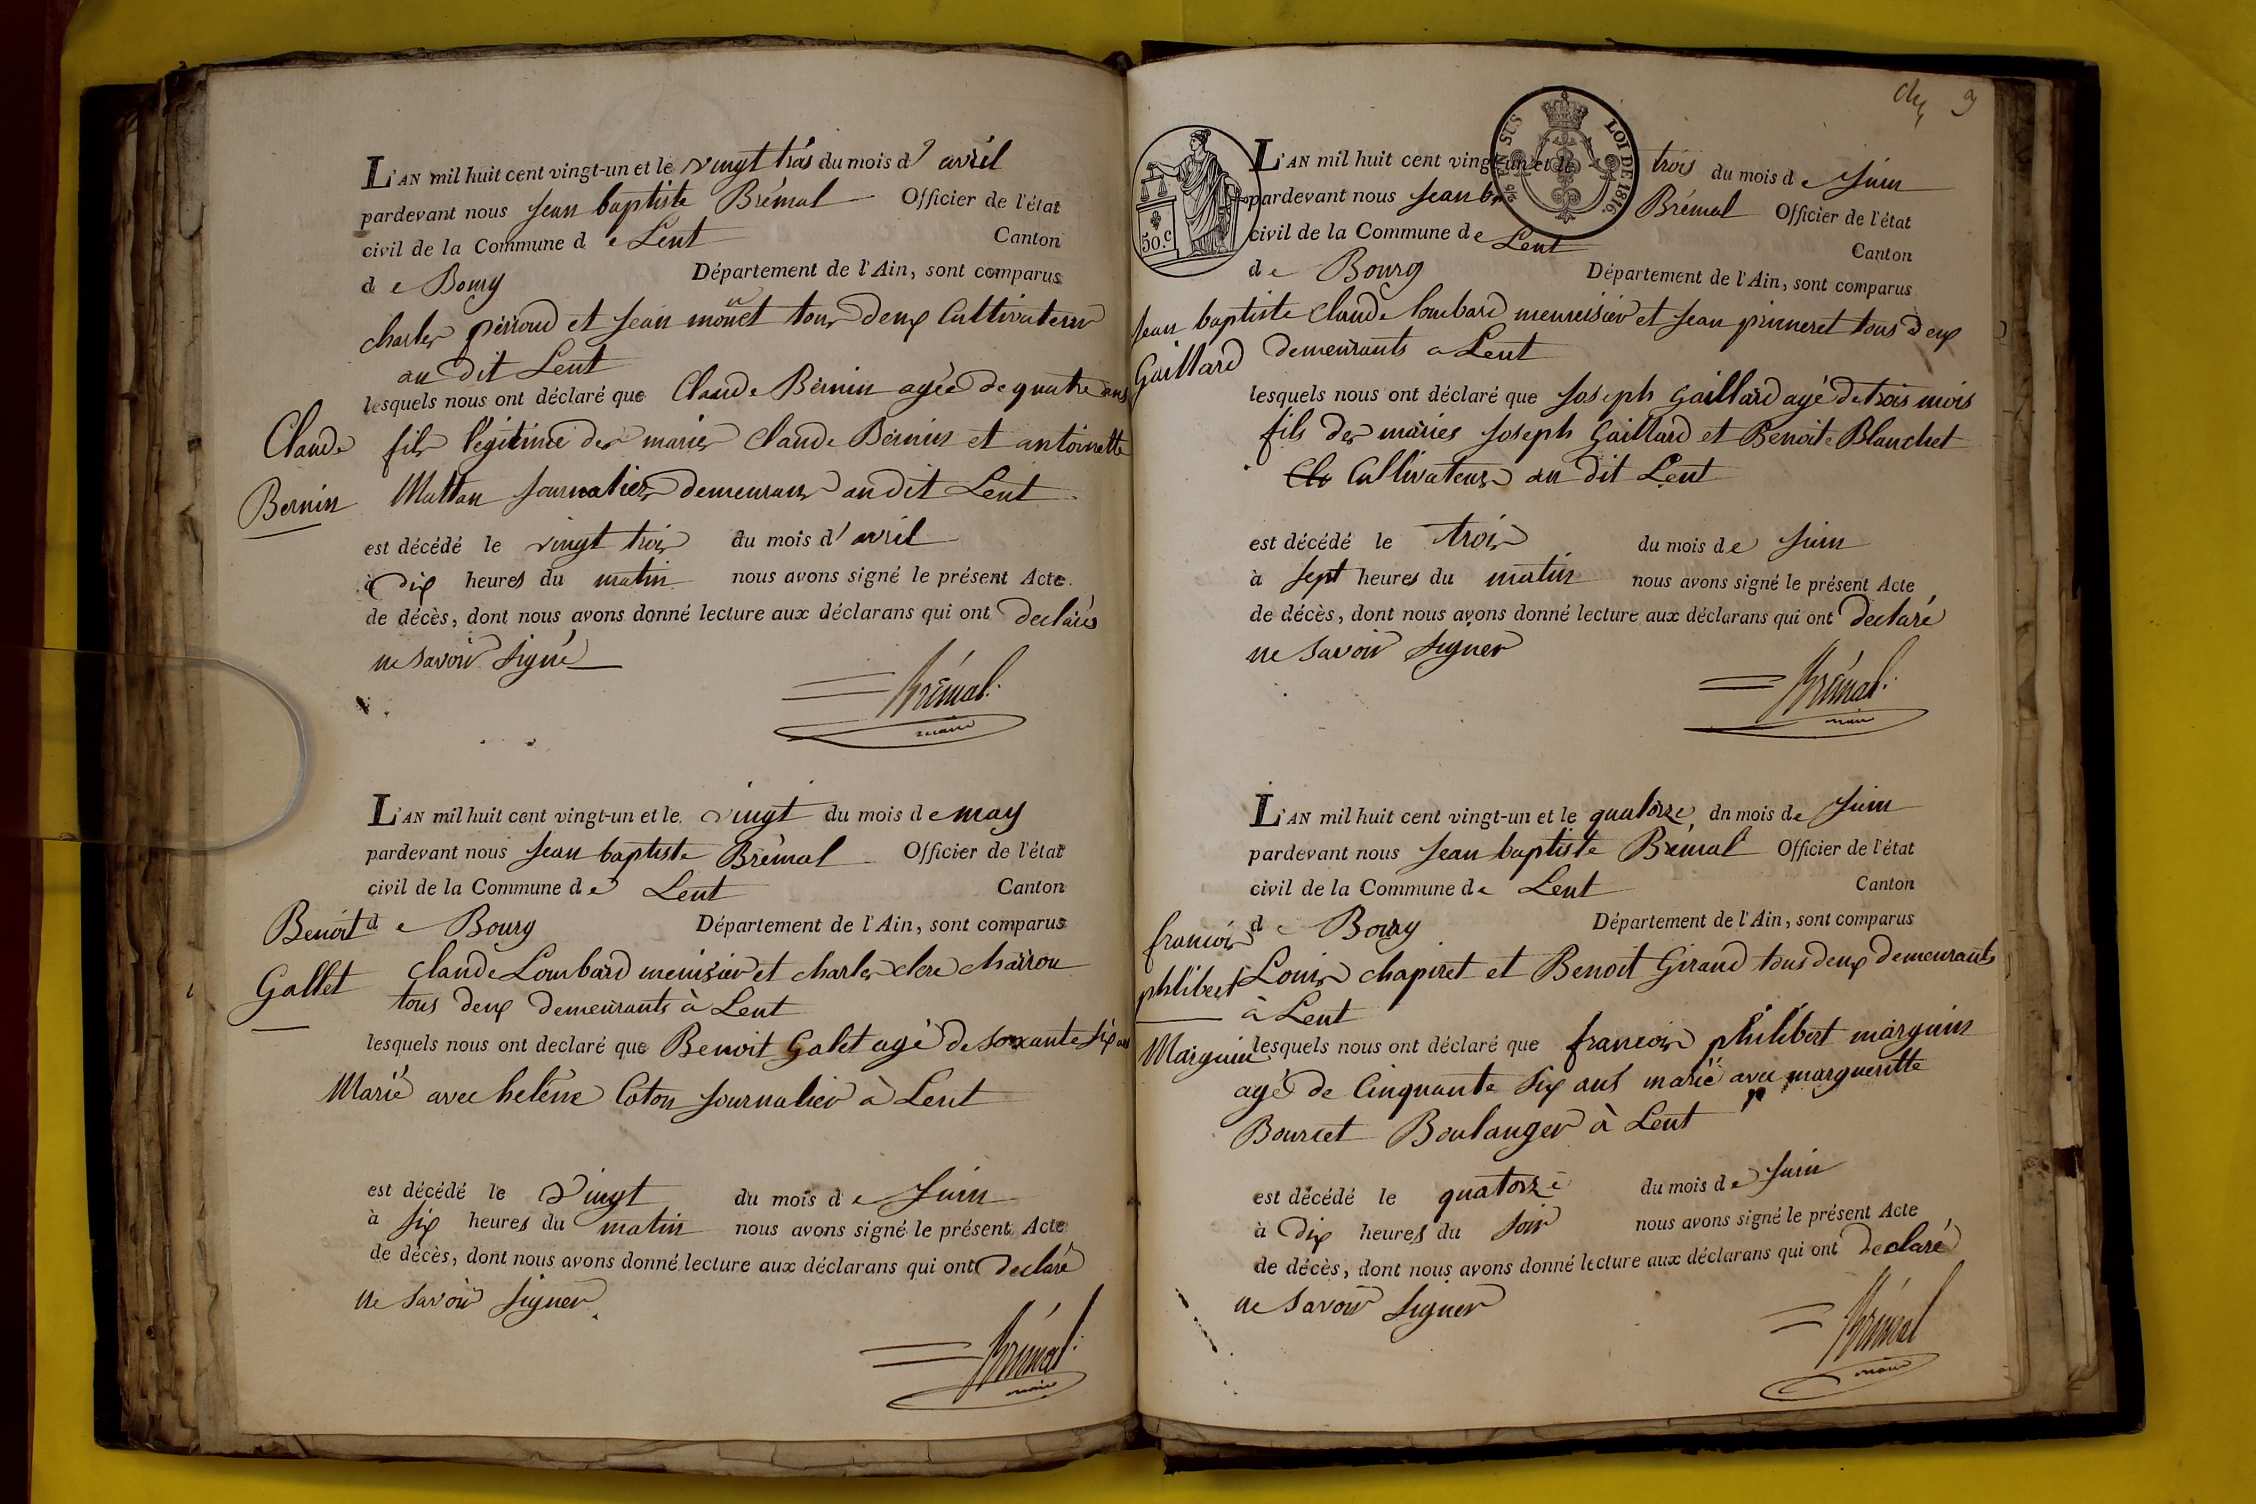 L'AN mil huit cent vingt-un et le vingt trois du mois d'avril
pardevant nous Jean baptiste Brémal Officier de l'état
civil de la Commune de Lent Canton
de Bourg Département de l'Ain, sont comparus
charles perroud et Jean mouet tous deux Cultivateurs
au dit Lent
lesquels nous ont déclaré que Claude Bernin agée de quatre ans
Claude
fils légitime des mariés Claude Bernin et antoinette
Bernin
Mattan Journaliers demeurans au dit Lent
est décédé le vingt trois du mois d'avril
à dix heures du matin nous avons signé le présent Acte
de décès, dont nous avons donné lecture aux déclarans qui ont declarés
ne savoir Signé
Brémal.
maire
L'AN mil huit cent vingt-un et le vingt du mois de may
pardevant nous Jean baptiste Brémal Officier de l'état
civil de la Commune de Lent Canton
Benoit
de Bourg Département de l'Ain, sont comparus
Gallet
Claude Lombard menisier et charles clere charron
tous deux demeurants à Lent
lesquels nous ont declaré que Benoit Galet agé de soixante six ans
Marié avec heléne Coton Journalier à Lent
est décédé le Vingt du mois de Juin
à six heures du matin nous avons signé le présent Acte
de décès, dont nous avons donné lecture aux déclarans qui ont declaré
ne savoir signer.
Brémal.
maire
9
50.c
EN SUS
LOI DE 1816.
L'AN mil huit cent vingt-un et le trois du mois de Juin
pardevant nous Jean b Brémal Officier de l'état
civil de la Commune de Lent Canton
de Bourg Département de l'Ain, sont comparus
Jean baptiste
Gaillard
Claude Lombard menuisier et Jean primeret tous deux
demeurants a Lent
lesquels nous ont déclaré que Joseph Gaillard agé de trois mois
fils des mariés Joseph Gaillard et Benoite Blanchet
Clo Cultivateurs au dit Lent
est décédé le trois du mois de Juin
à sept heures du matin nous avons signé le présent Acte
de décès, dont nous avons donné lecture aux déclarans qui ont declaré
ne savoir signer
Brémal.
maire
L'AN mil huit cent vingt-un et le quatorze du mois de Juin
pardevant nous Jean baptiste Brémal Officier de l'état
civil de la Commune de Lent Canton
de Bourg Département de l'Ain, sont comparus
francois
philibert
Marguin
Louis chapiret et Benoit Giraud tous deux demeurants
à Lent
lesquels nous ont déclaré que francois philibert marguin
agé de Cinquante six ans marié avec margueritte
Bourcet Boulanger à Lent
est décédé le quatorze du mois de Juin
à dix heures du soir nous avons signé le présent Acte
de décès, dont nous avons donné lecture aux déclarans qui ont declaré
ne savoir signer
Brémal
maire